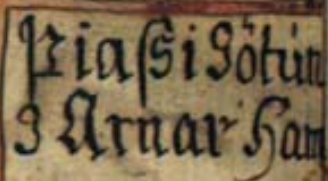 Þiaſsi Jötún
J Arnar Ham